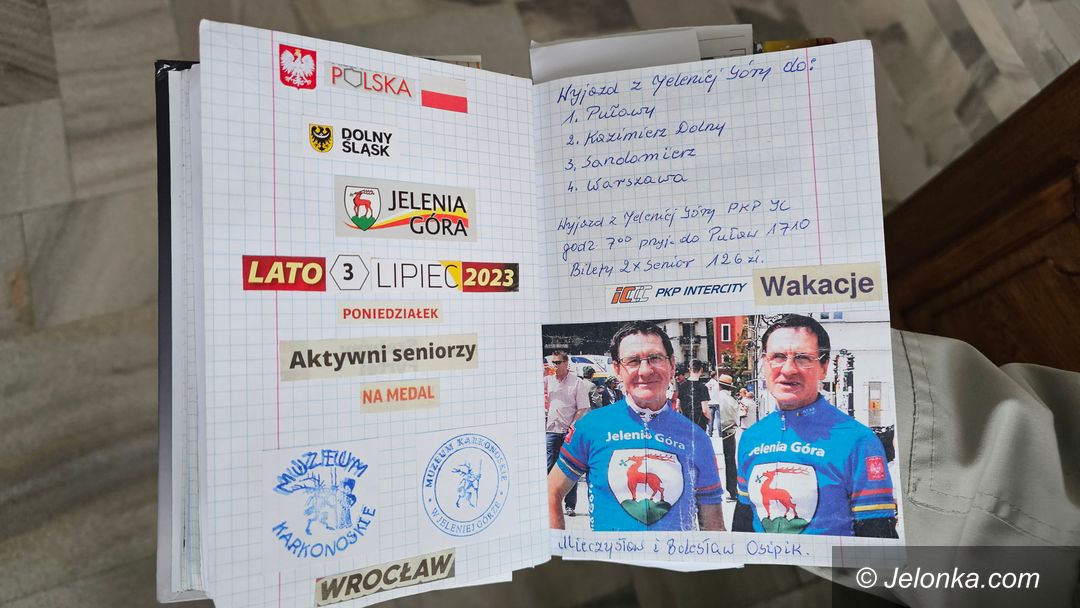 POLSKA
DOLNY
ŚLĄSK
JELENIA
GÓRA
LATO 3 LIPIEC 2023
PONIEDZIAŁEK
Aktywni seniorzy
NA MEDAL
MUZEUM
KARKONOSKIE
MUZEUM KARKONOSKIE
W JELENIEJ GÓRZE
WROCŁAW
Wyjazd z Jeleniej Góry do:
1. Puławy
2. Kazimierz Dolny
3. Sandomierz
4. Warszawa
Wyjazd z Jeleniej Góry PKP IC
godz 7⁰⁰ przyj. do Puław 17¹⁰
Bilety 2x Senior 126 zł.
PKP INTERCITY
Wakacje
Jelenia Góra
Jelenia Góra
Mieczysław i Bolesław Osipik.
© Jelonka.com